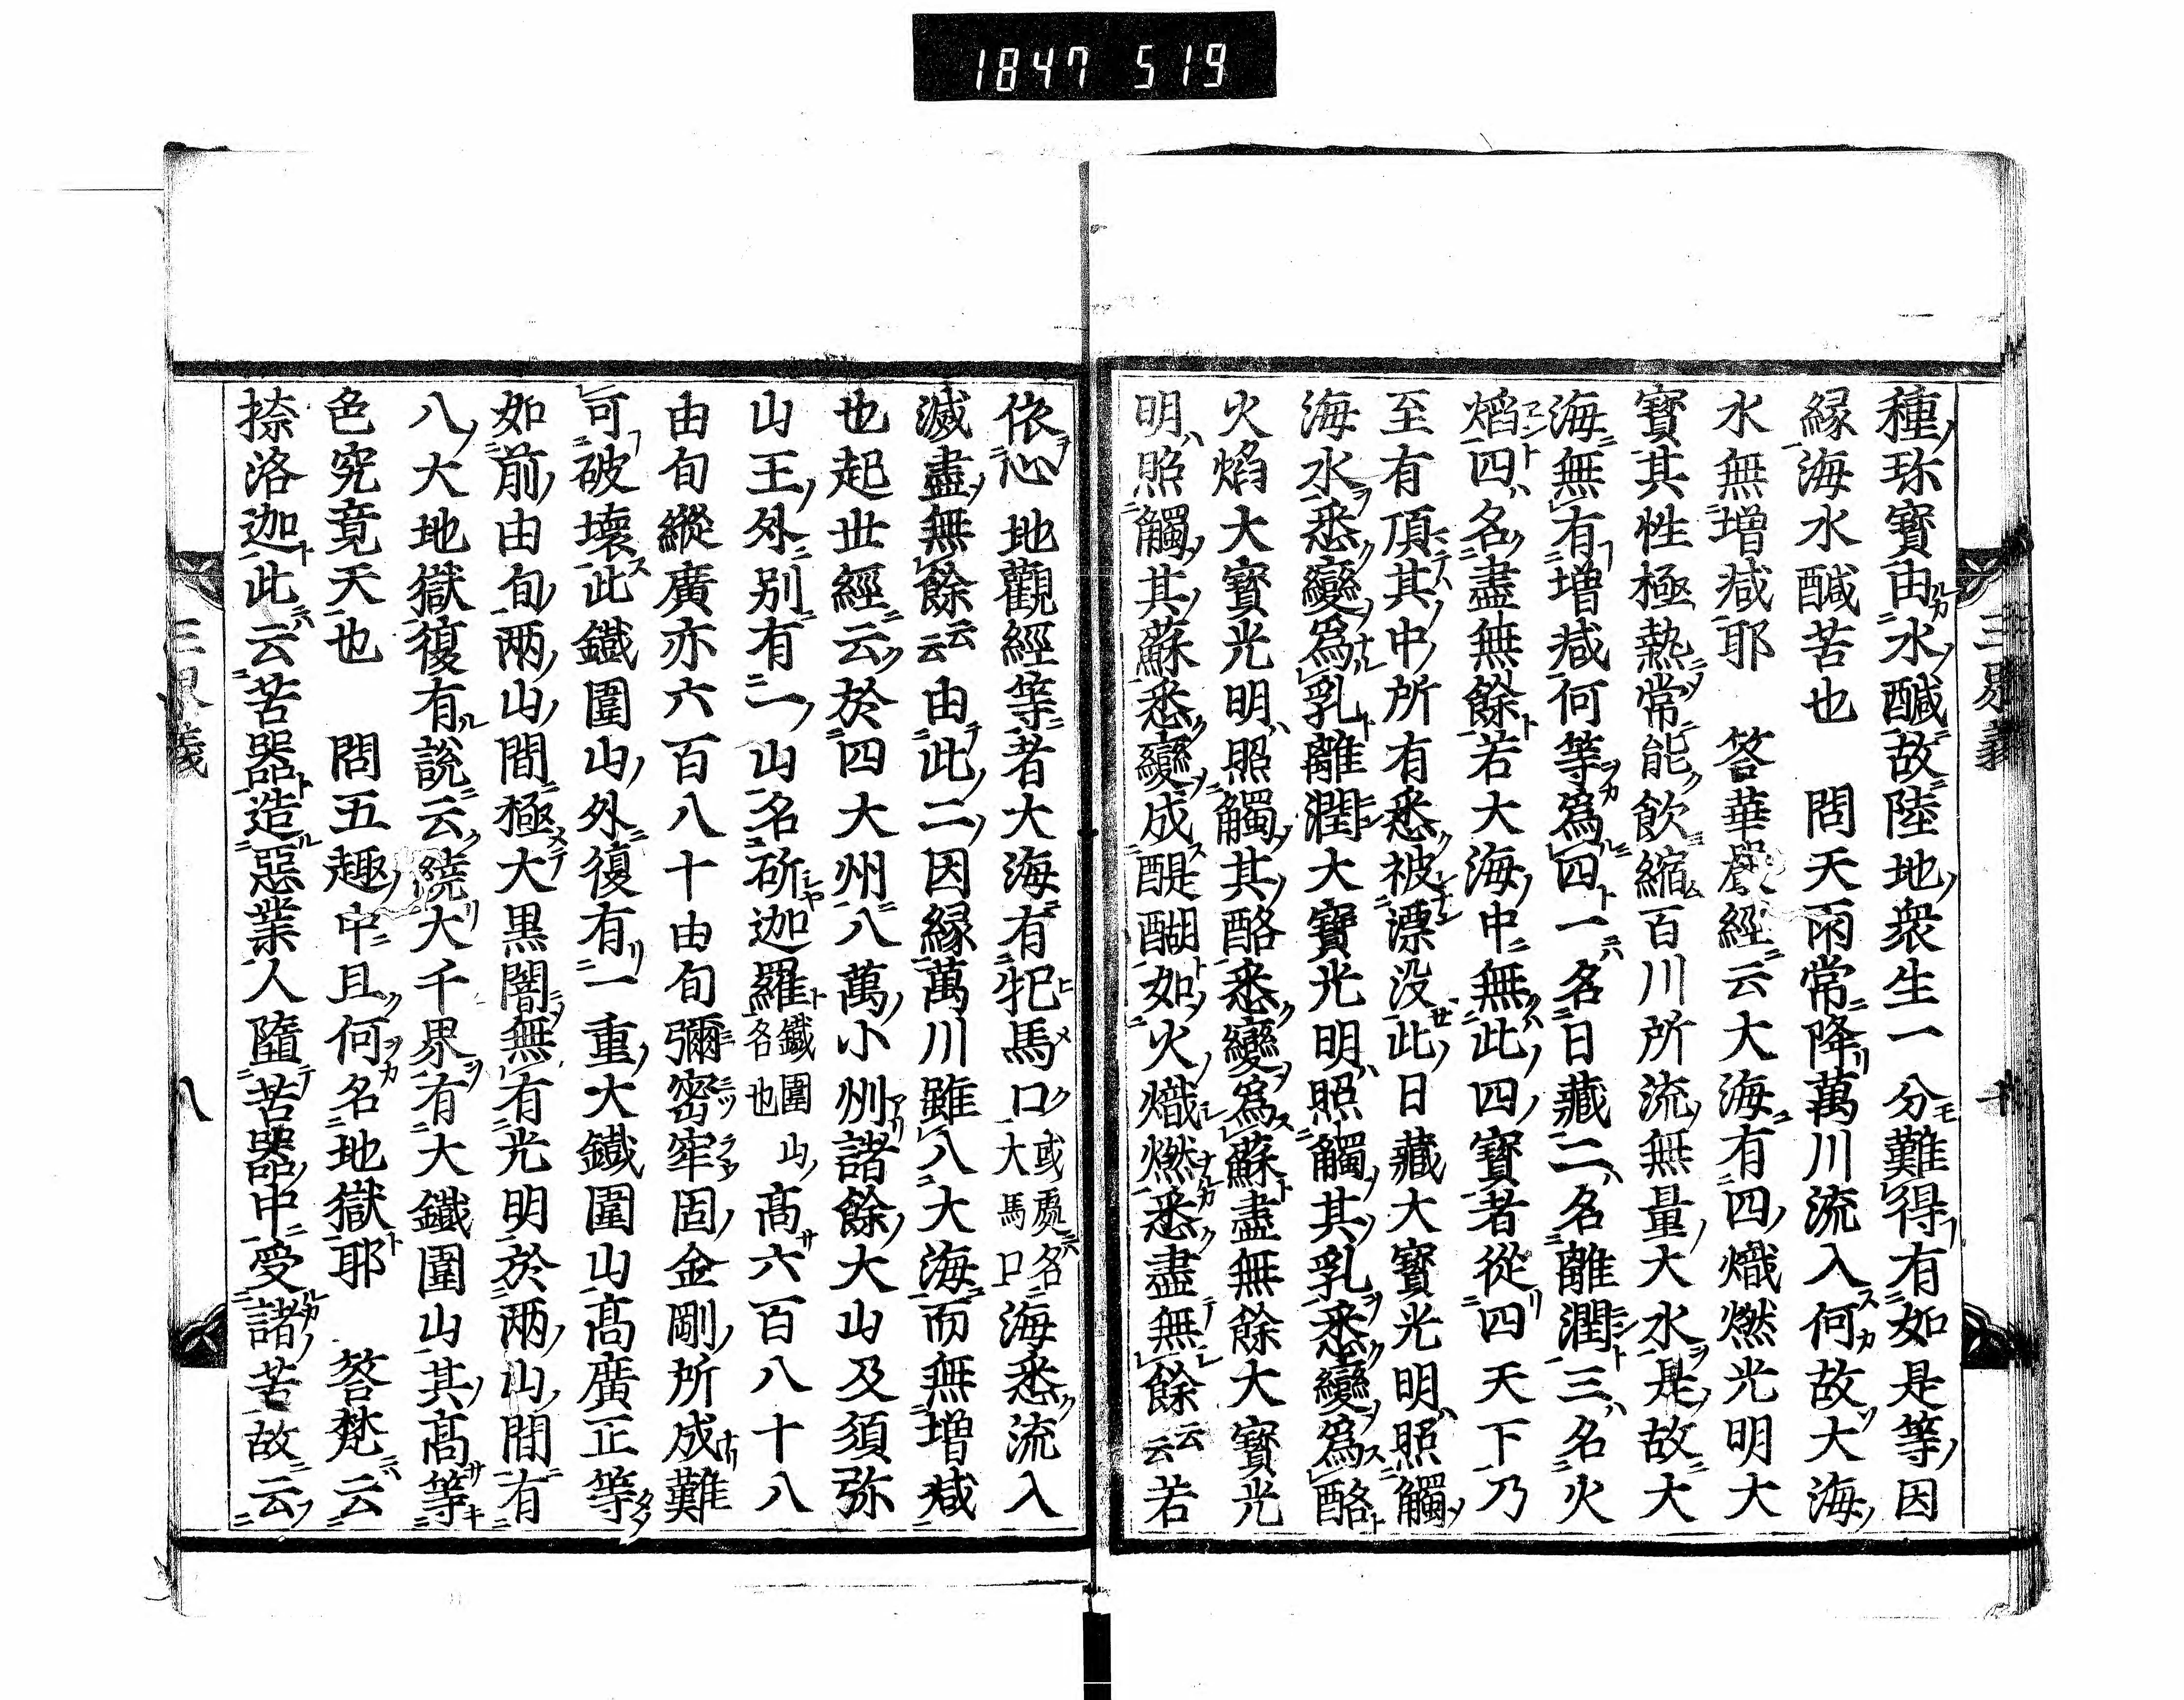 1847 519
三界義
種珎寳由水醎故陸地衆生一分難得有如是等因
縁海水醎苦也　問天雨常降萬川流入何故大海
水無増减耶　答華嚴經云大海有四熾燃光明大
寳其性極熱常能飲縮百川所流無量大水是故大
海無有増减何等爲四一名日藏二名離潤三名火
焰四名盡無餘若大海中無此四寳者從四天下乃
至有頂其中所有悉被漂没此日藏大寳光明照觸
海水悉變爲乳離潤大寳光明照觸其乳悉變爲酪
火焰大寳光明照觸其酪悉變爲蘇盡無餘大寳光
明照觸其蘇悉變成醍醐如火熾燃悉盡無餘云云若
依心地觀經等者大海有牝馬口或處名大馬口海悉流入
滅盡無餘云云由此二因縁萬川雖入大海而無増减
也起世經云於四大州八萬小州諸餘大山及須弥
山王外別有一山名斫迦羅鐵圍各也山高六百八十八
由旬縱廣亦六百八十由旬彌密牢固金剛所成難
可破壞此鐵圍山外復有一重大鐵圍山高廣正等
如前由旬兩山間極大黒闇無有光明於兩山間有
八大地獄復有説云繞大千界有大鐵圍山其高等
色究竟天也　問五趣中且何名地獄耶　答梵云
捺洛迦此云苦器造惡業人墮苦器中受諸苦故云
三界義
八